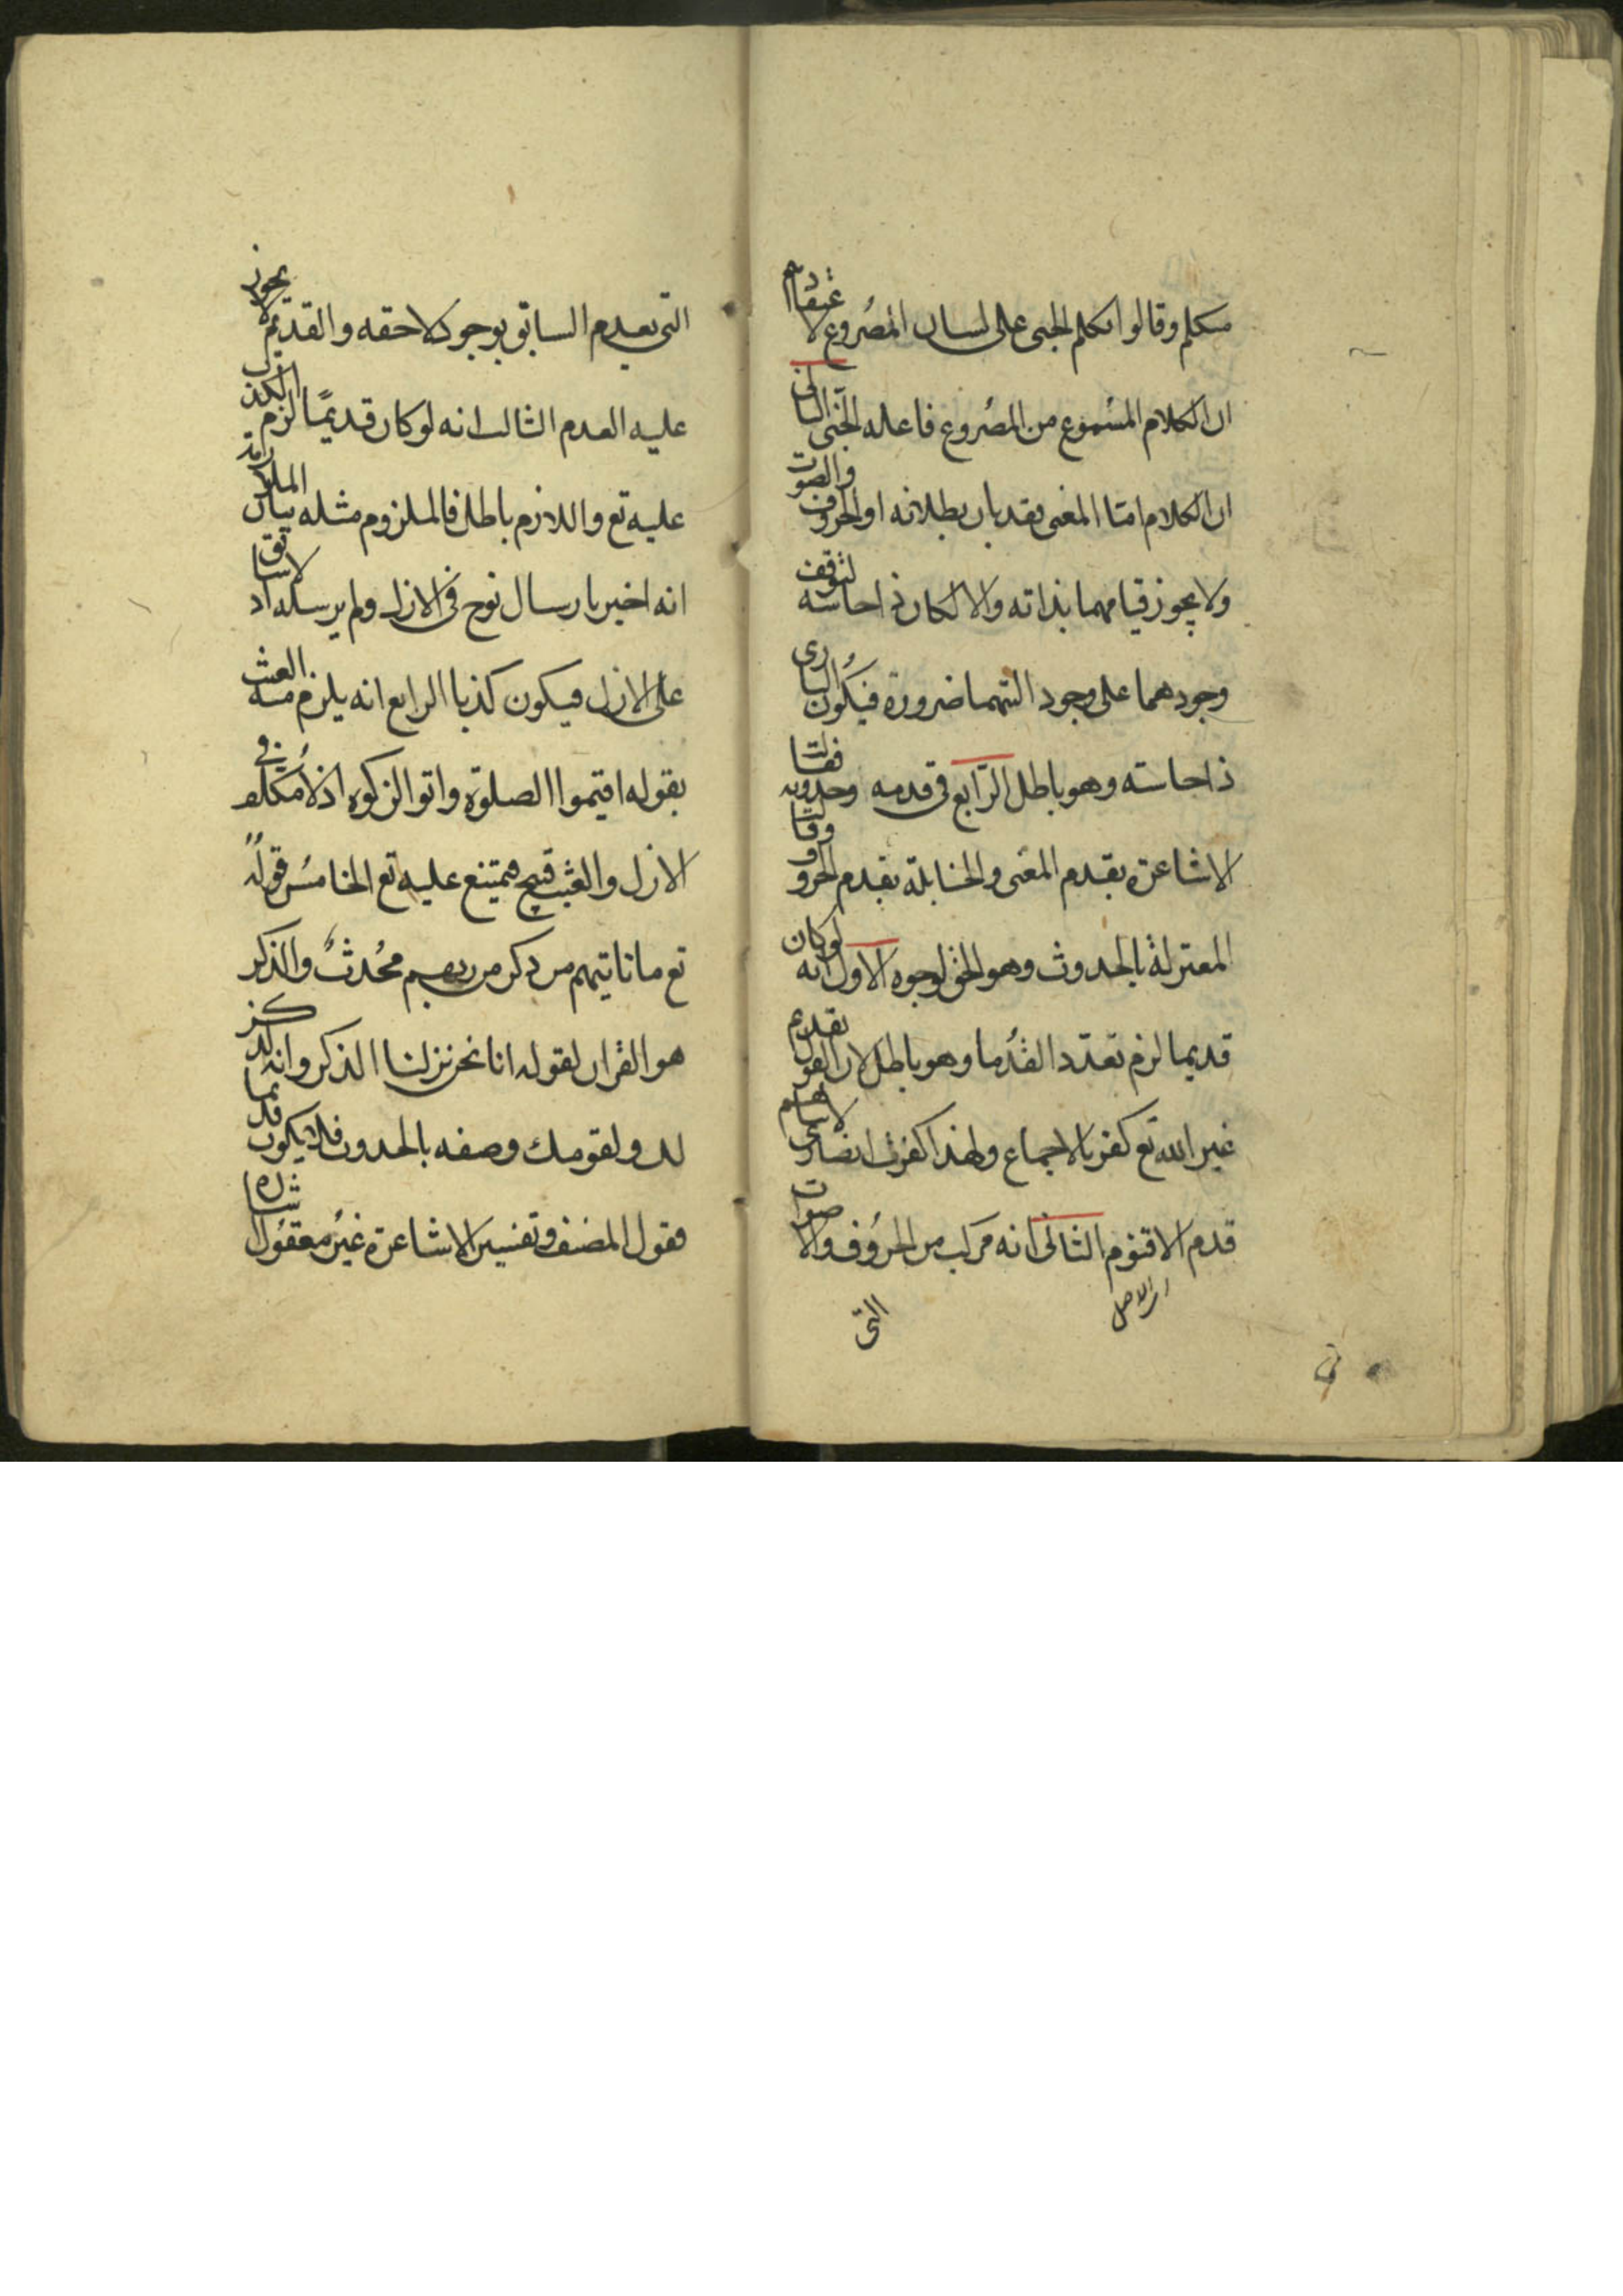 متكلم وقالوا تكلم الجنى على لسان المصروع لاعتقادهم
ان الكلام المسموع من المصروع فاعله الجنى الثانى
ان الكلام اما المعنى فقد بان بطلانه او الحروف والصوت
ولا يجوز قيامهما بذاته والا لكان ذا حاسه لتوقف
وجودهما على وجود التهما ضرورة فيكون البارى
ذا حاسته وهو باطل الرابع فى قدمه وحدوثه فقالت
الاشاعرة بقدم المعنى والحنابلة بقدم الحروف وقالت
المعتزلة بالحدوث وهو الحق لوجوه الاول انه لو كان
قديما لزم تعدد القدما وهو باطل لان القول بقدم
غير الله تع كفر بالاجماع ولهذا كفرت النصارى
قدم الاقنوم الثانى انه مركب من الحروف والاصوات
اى الاصل
التى
التى يعدم السابق بوجود لاحقه والقديم لا يجوز
عليه العدم الثالث انه لو كان قديمًا لزم الكذب
عليه تع واللازم باطل فالملزوم مثله بيان الملازمة
انه اخبر بارسال نوح فى الازل ولم يرسله اذ لا سابق
على الازل فيكون كذبا الرابع انه يلزم منه العبث
بقوله اقيموا الصلوة واتوا الزكوة اذ لا مكلف فى
الازل والعبث قبيح فيمتنع عليه تع الخامس قوله
تع ما ياتيهم من ذكر من ربهم محدث والذكر
هو القران لقوله انا نحن نزلنا الذكر وانه لذكر
لك ولقومك وصفه بالحدوث فلا يكون قديما
فقول المصنف وتفسير الاشاعرة غير معقول اشاره